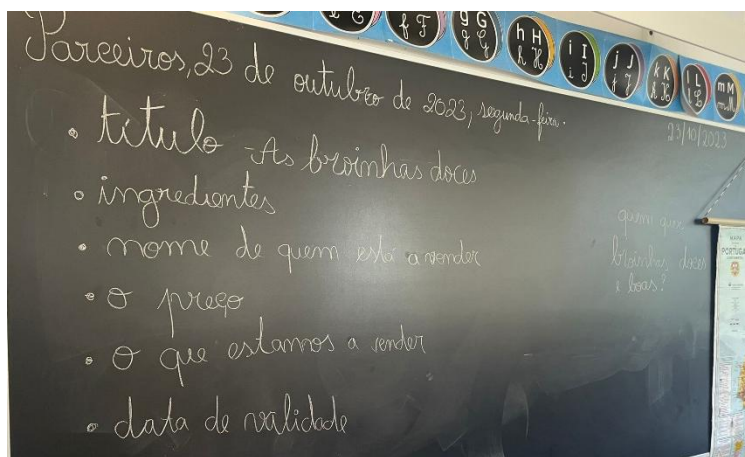 f F
g G
h H
i I
j J
k K
l L
m M
Parceiros, 23 de outubro de 2023, segunda-feira.
23/10/2023
• título - As broinhas doces
• ingredientes
• nome de quem está a vender
• o preço
• o que estamos a vender
• data de validade
quem quer
broinhas doces
e boas?
MAPA
PORTUGAL